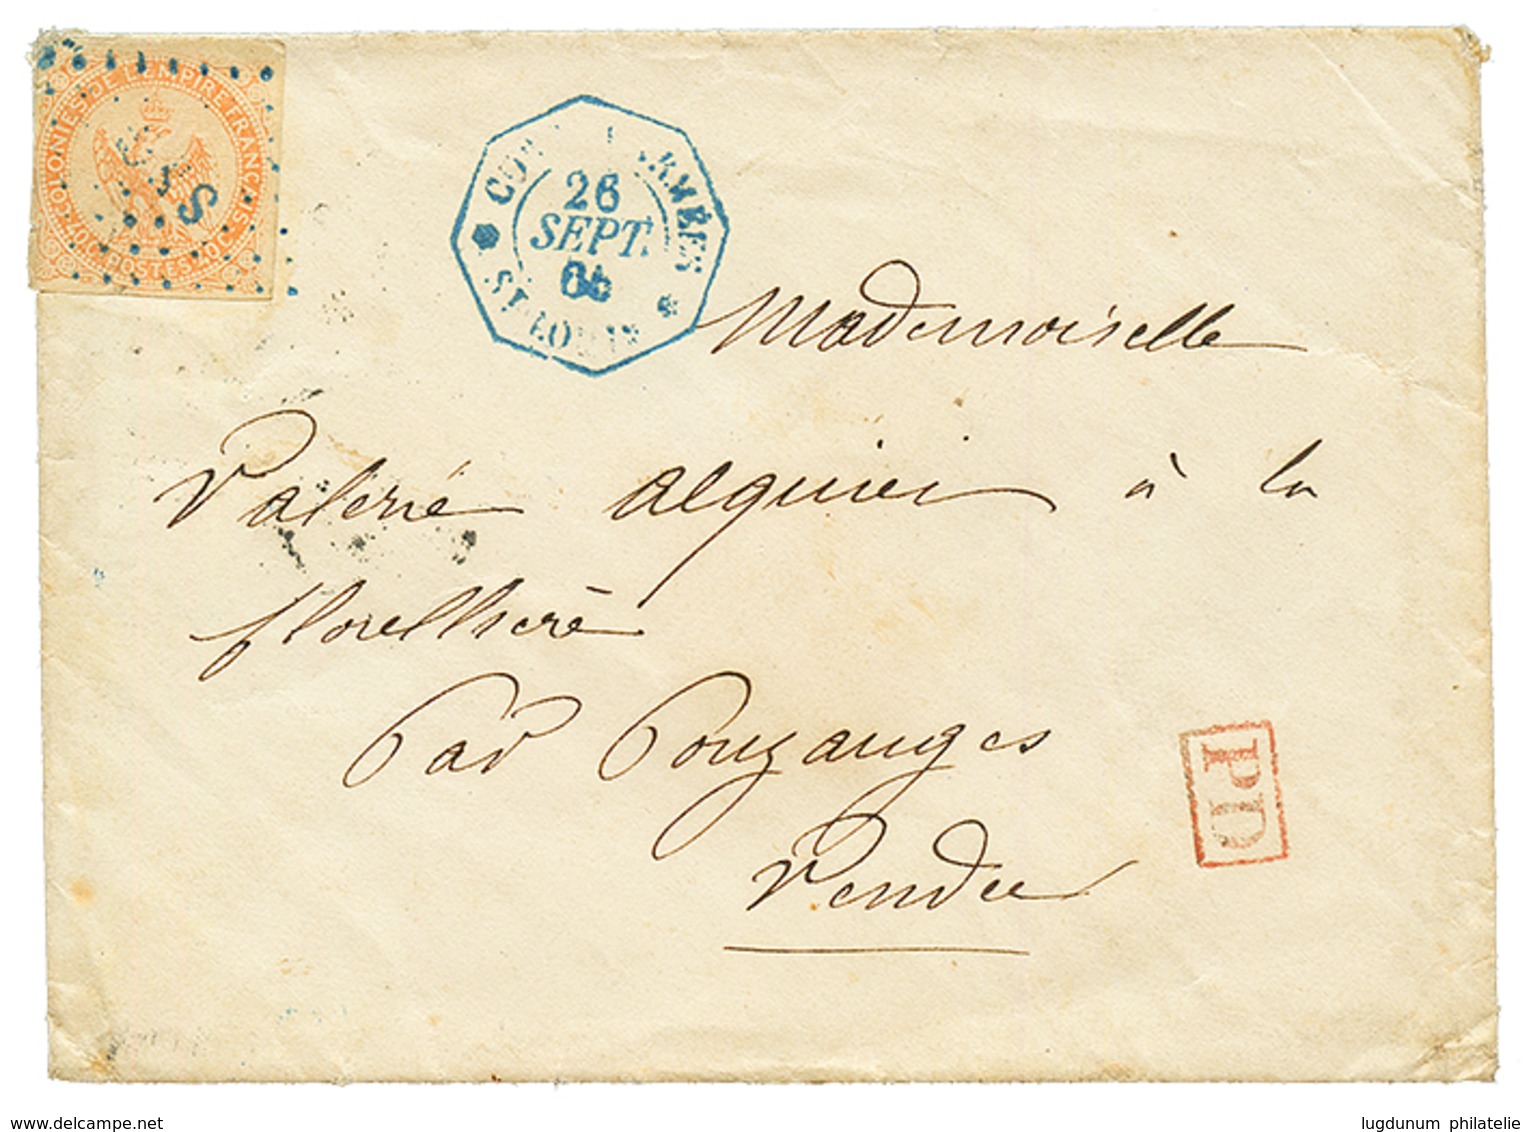 COLONIES DE L'EMPIRE FRANÇAIS
40C. POSTES 40C.
26
SEPT.
ST LOUIS
Mademoiselle
Valérie alquier à la
par Pouzanges
Vendée
PD
www.delcampe.net
lugdunum philatelie